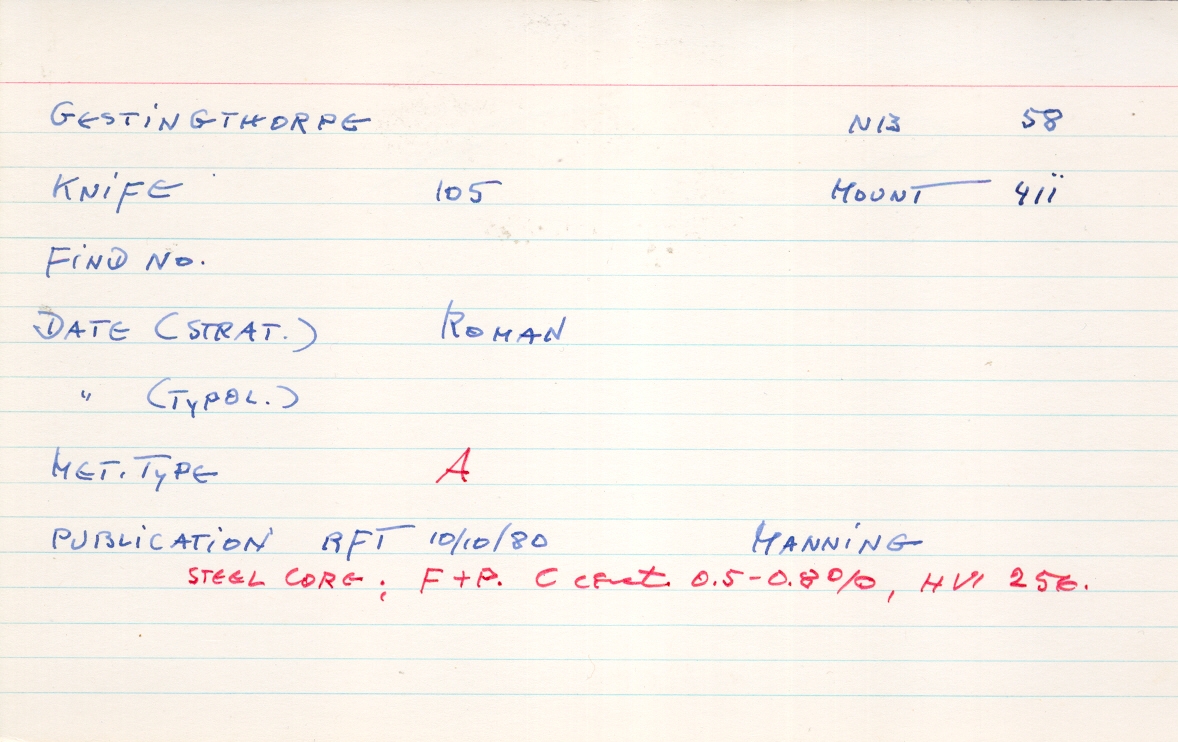 GESTINGTHORPE N13 58
KNIFE 105 MOUNT 411
FIND NO.
DATE (STRAT.) ROMAN
" (TYPOL.)
MET. TYPE A
PUBLICATION RFT 10/10/80 MANNING
STEEL CORE; F+P. C cont. 0.5-0.8%, HV1 256.